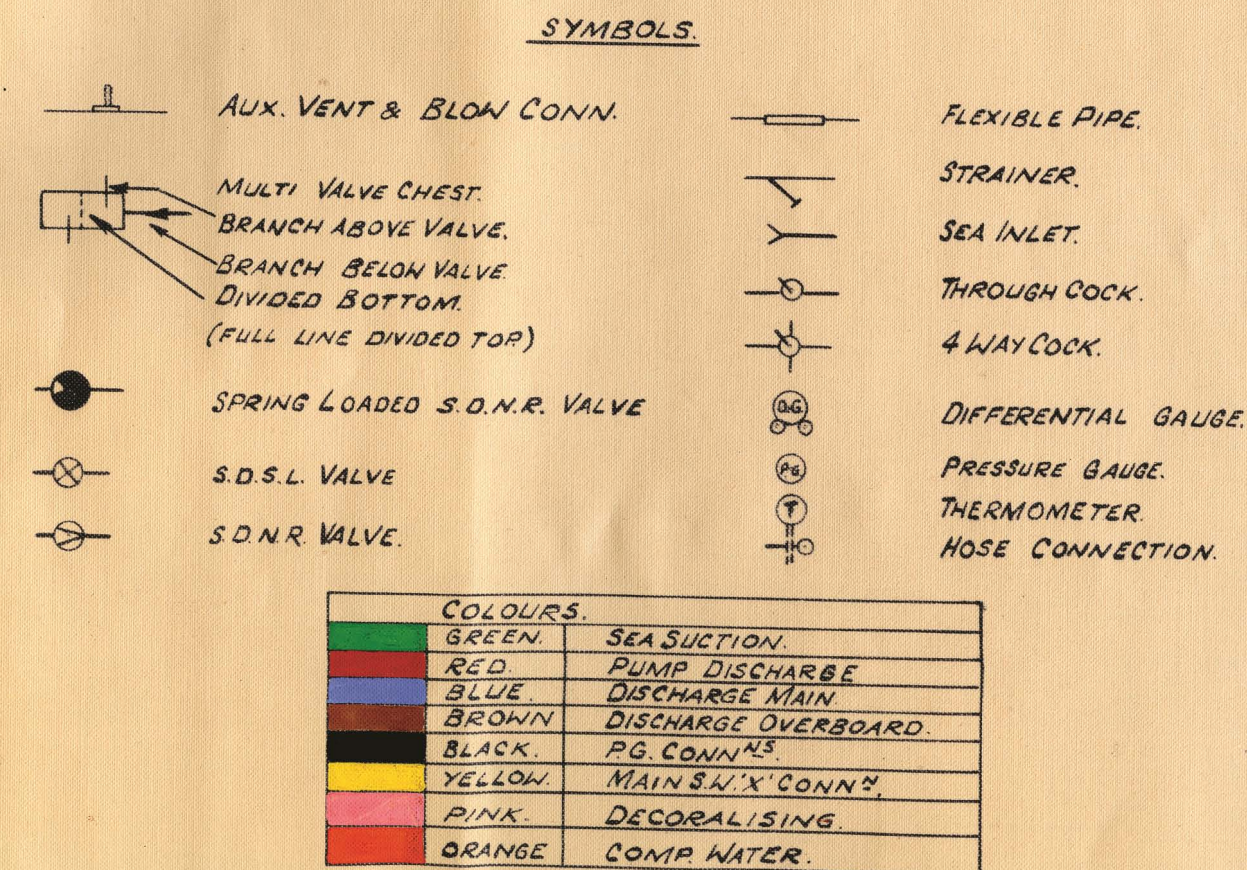 SYMBOLS.
AUX. VENT & BLOW CONN.
MULTI VALVE CHEST.
BRANCH ABOVE VALVE.
BRANCH BELOW VALVE.
DIVIDED BOTTOM.
(FULL LINE DIVIDED TOP.)
SPRING LOADED S.D.N.R. VALVE
S.D.S.L. VALVE
S.D.N.R. VALVE.
FLEXIBLE PIPE.
STRAINER.
SEA INLET.
THROUGH COCK.
4 WAY COCK.
D.G. DIFFERENTIAL GAUGE.
P.G. PRESSURE GAUGE.
T THERMOMETER.
HOSE CONNECTION.
COLOURS.
GREEN. SEA SUCTION.
RED. PUMP DISCHARGE
BLUE. DISCHARGE MAIN
BROWN DISCHARGE OVERBOARD.
BLACK. P.G. CONNNS.
YELLOW. MAIN S.W.'X' CONNN.
PINK. DECORALISING.
ORANGE COMP. WATER.